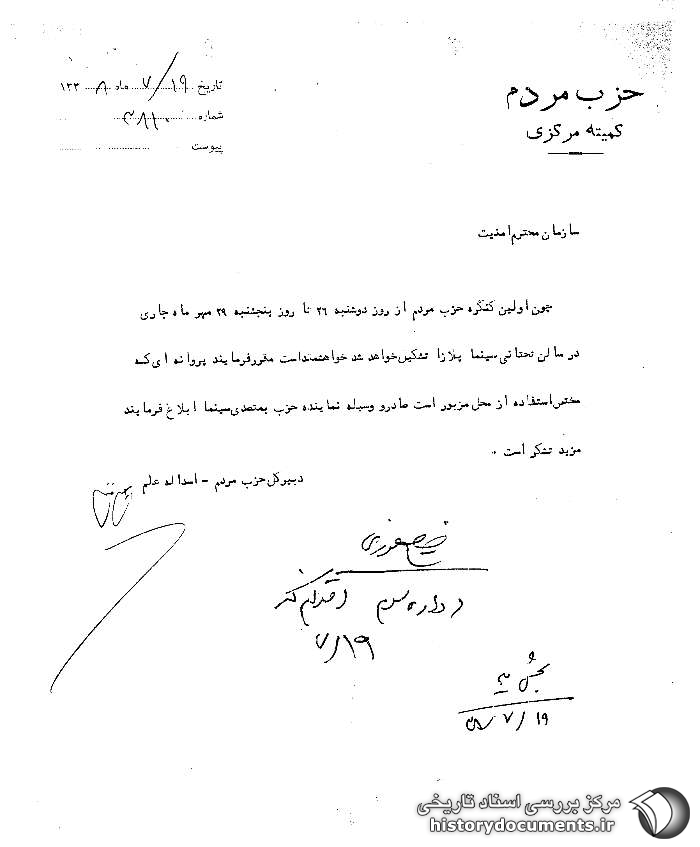 حزب مردم
کمیته مرکزی
تاریخ ۷/۱۹ ماه ۸ ۱۳۳
شماره ۳۸۲۰
پیوست
سازمان محترم امنیت
چون اولین کنگره حزب مردم از روز دوشنبه ۲۶ تا روز پنجشنبه ۲۹ مهر ماه جاری
در سالن تحتانی سینما پلازا تشکیل خواهد شد خواهشمند است مقرر فرمایند پروانه ای که
مختص استفاده از محل مزبور است صادر و وسیله نماینده حزب بمتصدی سینما ابلاغ فرمایند
مزید تشکر است .
دبیر کل حزب مردم - اسداله علم
اداره سوم اقدام کند
۷/۱۹
بخش
۳۸/۷/۱۹
مرکز بررسی اسناد تاریخی
historydocuments.ir